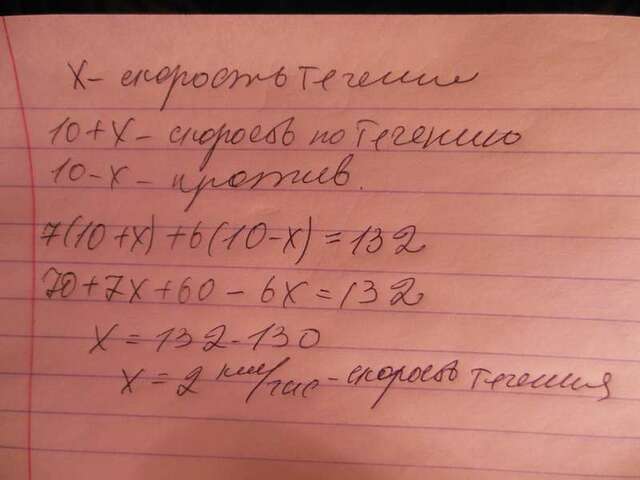 X - скорость течения
10+X - скорость по течению
10-X - против.
7(10+X)+6(10-X)=132
70+7X+60-6X=132
X=132-130
X=2 км/час - скорость течения